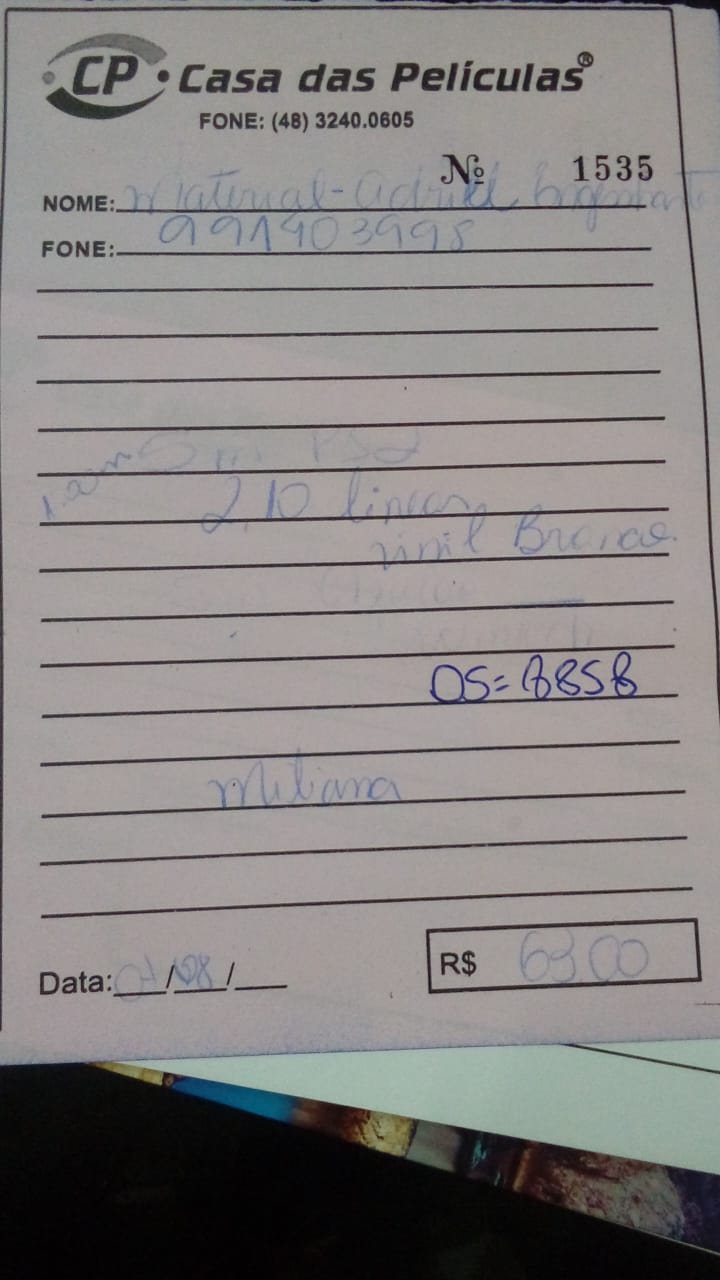 CP • Casa das Películas®
FONE: (48) 3240.0605
Nº 1535
NOME: Material - Adriel
FONE: 991903998
2,10 linear
vinil Branco
OS= 8858
Data: / 08 /
R$ 63,00